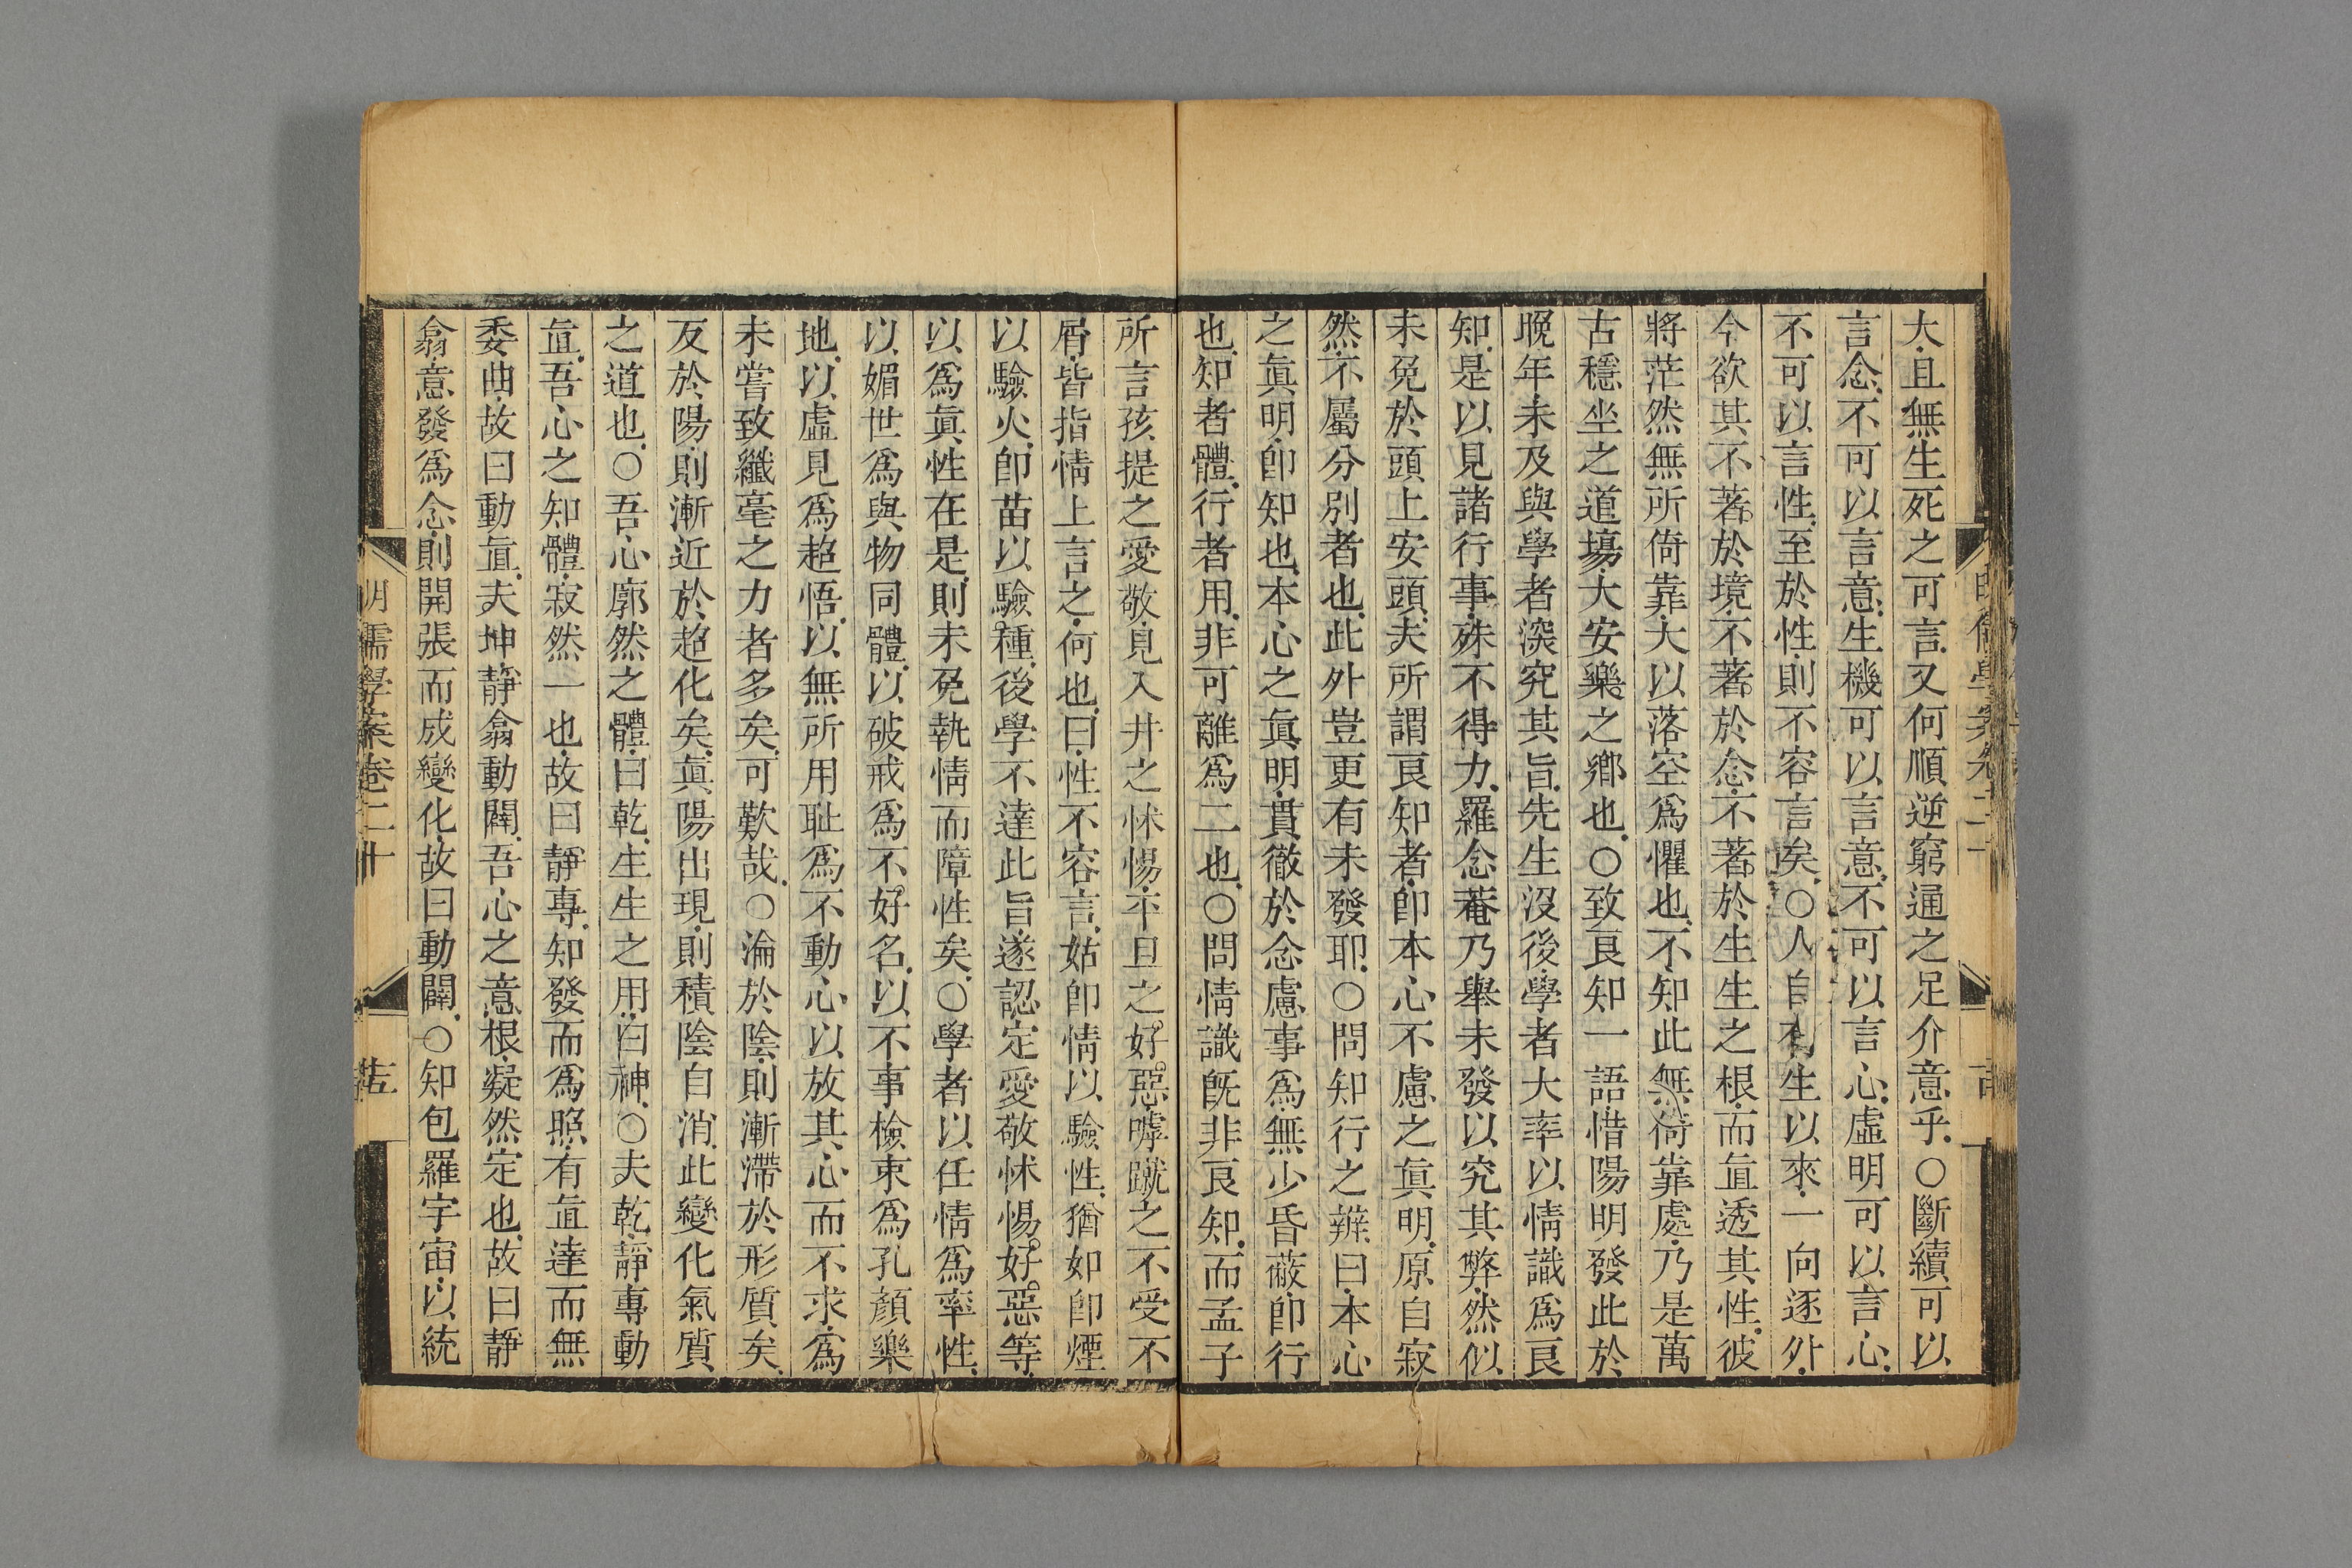 大且無生死之可言又何順逆窮通之足介意乎○斷續可以
言念不可以言意生機可以言意不可以言心虛明可以言心
不可以言性至於性則不容言矣○人自有生以來一向逐外
今欲其不著於境不著於念不著於生生之根而直透其性彼
將茫然無所倚靠大以落空爲懼也不知此無倚靠處乃是萬
古穩坐之道場大安樂之鄉也○致良知一語惜陽明發此於
晚年未及與學者深究其旨先生沒後學者大率以情識爲良
知是以見諸行事殊不得力羅念菴乃舉未發以究其弊然似
未免於頭上安頭夫所謂良知者卽本心不慮之眞明原自寂
然不屬分別者也此外豈更有未發耶○問知行之辨曰本心
之眞明卽知也本心之眞明貫徹於念慮事爲無少昏蔽卽行
也知者體行者用非可離爲二也○問情識旣非良知而孟子
所言孩提之愛敬見入井之怵惕平旦之好惡嘑蹴之不受不
屑皆指情上言之何也曰性不容言姑卽情以驗性猶如卽煙
以驗火卽苗以驗種後學不達此旨遂認定愛敬怵惕好惡等
以爲眞性在是則未免執情而障性矣○學者以任情爲率性
以媚世爲與物同體以破戒爲不好名以不事檢束爲孔顏樂
地以虛見爲超悟以無所用耻爲不動心以放其心而不求爲
未嘗致纖毫之力者多矣可歎哉○淪於陰則漸滯於形質矣
反於陽則漸近於超化矣眞陽出現則積陰自消此變化氣質
之道也○吾心廓然之體曰乾生生之用曰神○夫乾靜專動
直吾心之知體寂然一也故曰靜專知發而爲照有直達而無
委曲故曰動直夫坤靜翕動闢吾心之意根凝然定也故曰靜
翕意發爲念則開張而成變化故曰動闢○知包羅宇宙以統
明儒學案卷二十